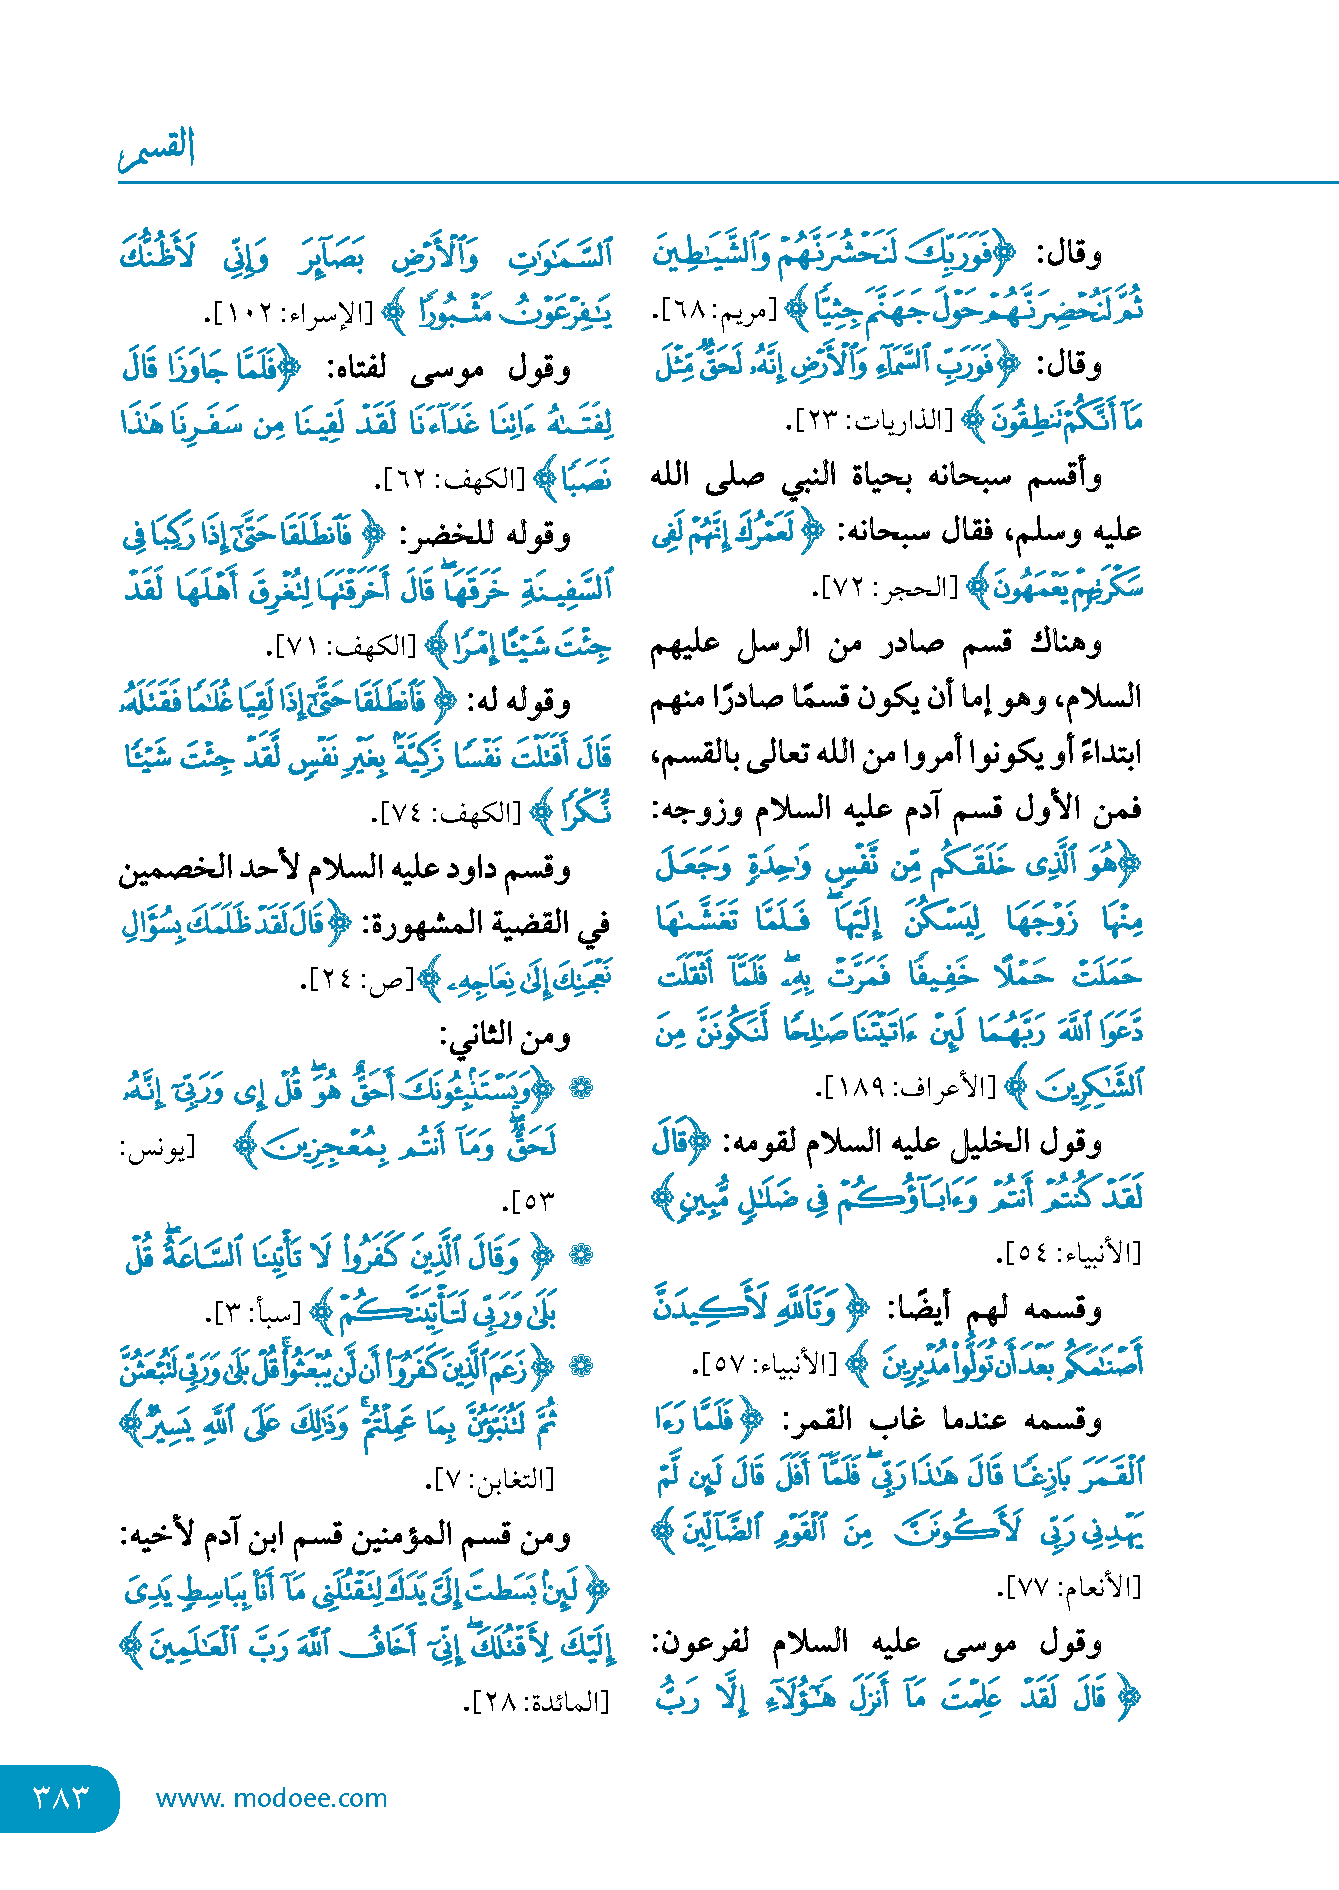 القسم
وقال: ﴿فَوَرَبِّكَ لَنَحْشُرَنَّهُمْ وَٱلشَّيَٰطِينَ
ثُمَّ لَنُحْضِرَنَّهُمْ حَوْلَ جَهَنَّمَ جِثِيًّا﴾ [مريم: ٦٨].
وقال: ﴿فَوَرَبِّ ٱلسَّمَآءِ وَٱلْأَرْضِ إِنَّهُۥ لَحَقٌّ مِّثْلَ
مَآ أَنَّكُمْ نَنطِقُونَ﴾ [الذاريات: ٢٣].
وأقسم سبحانه بحياة النبي صلى الله
عليه وسلم، فقال سبحانه: ﴿لَعَمْرُكَ إِنَّهُمْ لَفِى
سَكْرَتِهِمْ يَعْمَهُونَ﴾ [الحجر: ٧٢].
وهناك قسم صادر من الرسل عليهم
السلام، وهو إما أن يكون قسمًا صادرًا منهم
ابتداءً أو يكونوا أمروا من الله تعالى بالقسم،
فمن الأول قسم آدم عليه السلام وزوجه:
﴿هُوَ ٱلَّذِى خَلَقَكُم مِّن نَّفْسٍ وَٰحِدَةٍ وَجَعَلَ
مِنْهَا زَوْجَهَا لِيَسْكُنَ إِلَيْهَا ۖ فَلَمَّا تَغَشَّىٰهَا
حَمَلَتْ حَمْلًا خَفِيفًا فَمَرَّتْ بِهِۦ ۖ فَلَمَّآ أَثْقَلَت
دَّعَوَا ٱللَّهَ رَبَّهُمَا لَئِنْ ءَاتَيْتَنَا صَٰلِحًا لَّنَكُونَنَّ مِنَ
ٱلشَّٰكِرِينَ﴾ [الأعراف: ١٨٩].
وقول الخليل عليه السلام لقومه: ﴿قَالَ
لَقَدْ كُنتُمْ أَنتُمْ وَءَابَآؤُكُمْ فِى ضَلَٰلٍ مُّبِينٍ﴾
[الأنبياء: ٥٤].
وقسمه لهم أيضًا: ﴿وَتَٱللَّهِ لَأَكِيدَنَّ
أَصْنَٰمَكُم بَعْدَ أَن تُوَلُّوا۟ مُدْبِرِينَ﴾ [الأنبياء: ٥٧].
وقسمه عندما غاب القمر: ﴿فَلَمَّا رَءَا
ٱلْقَمَرَ بَازِغًا قَالَ هَٰذَا رَبِّى ۖ فَلَمَّآ أَفَلَ قَالَ لَئِن لَّمْ
يَهْدِنِى رَبِّى لَأَكُونَنَّ مِنَ ٱلْقَوْمِ ٱلضَّآلِّينَ﴾
[الأنعام: ٧٧].
وقول موسى عليه السلام لفرعون:
﴿قَالَ لَقَدْ عَلِمْتَ مَآ أَنزَلَ هَٰٓؤُلَآءِ إِلَّا رَبُّ
ٱلسَّمَٰوَٰتِ وَٱلْأَرْضِ بَصَآئِرَ وَإِنِّى لَأَظُنُّكَ
يَٰفِرْعَوْنُ مَثْبُورًا﴾ [الإسراء: ١٠٢].
وقول موسى لفتاه: ﴿فَلَمَّا جَاوَزَا قَالَ
لِفَتَىٰهُ ءَاتِنَا غَدَآءَنَا لَقَدْ لَقِينَا مِن سَفَرِنَا هَٰذَا
نَصَبًا﴾ [الكهف: ٦٢].
وقوله للخضر: ﴿فَٱنطَلَقَا حَتَّىٰٓ إِذَا رَكِبَا فِى
ٱلسَّفِينَةِ خَرَقَهَا ۖ قَالَ أَخَرَقْتَهَا لِتُغْرِقَ أَهْلَهَا لَقَدْ
جِئْتَ شَيْـًٔا إِمْرًا﴾ [الكهف: ٧١].
وقوله له: ﴿فَٱنطَلَقَا حَتَّىٰٓ إِذَا لَقِيَا غُلَٰمًا فَقَتَلَهُۥ
قَالَ أَقَتَلْتَ نَفْسًا زَكِيَّةًۢ بِغَيْرِ نَفْسٍ لَّقَدْ جِئْتَ شَيْـًٔا
نُّكْرًا﴾ [الكهف: ٧٤].
وقسم داود عليه السلام لأحد الخصمين
في القضية المشهورة: ﴿قَالَ لَقَدْ ظَلَمَكَ بِسُؤَالِ
نَعْجَتِكَ إِلَىٰ نِعَاجِهِۦ﴾ [ص: ٢٤].
ومن الثاني:
❁ ﴿وَيَسْتَنۢبِـُٔونَكَ أَحَقٌّ هُوَ ۖ قُلْ إِى وَرَبِّىٓ إِنَّهُۥ
لَحَقٌّ ۖ وَمَآ أَنتُم بِمُعْجِزِينَ﴾ [يونس:
٥٣].
❁ ﴿وَقَالَ ٱلَّذِينَ كَفَرُوا۟ لَا تَأْتِينَا ٱلسَّاعَةُ ۖ قُلْ
بَلَىٰ وَرَبِّى لَتَأْتِيَنَّكُمْ﴾ [سبأ: ٣].
❁ ﴿زَعَمَ ٱلَّذِينَ كَفَرُوٓا۟ أَن لَّن يُبْعَثُوا۟ ۚ قُلْ بَلَىٰ وَرَبِّى لَتُبْعَثُنَّ
ثُمَّ لَتُنَبَّؤُنَّ بِمَا عَمِلْتُمْ ۚ وَذَٰلِكَ عَلَى ٱللَّهِ يَسِيرٌ﴾
[التغابن: ٧].
ومن قسم المؤمنين قسم ابن آدم لأخيه:
﴿لَئِنۢ بَسَطتَ إِلَىَّ يَدَكَ لِتَقْتُلَنِى مَآ أَنَا۠ بِبَاسِطٍ يَدِىَ
إِلَيْكَ لِأَقْتُلَكَ ۖ إِنِّىٓ أَخَافُ ٱللَّهَ رَبَّ ٱلْعَٰلَمِينَ﴾
[المائدة: ٢٨].
www. modoee.com
٣٨٣